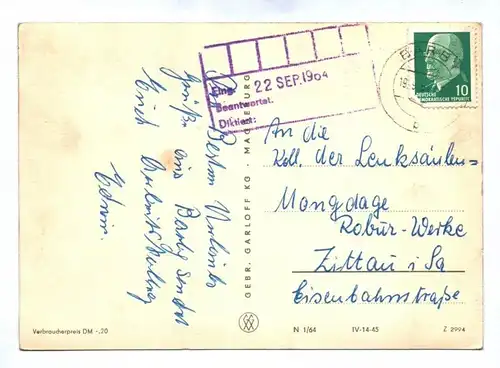 Die Besten Urlaubs
Grüße aus
Euch
Edwin.
GEBR. GARLOFF KG · MAGDEBURG
Eing.
22 SEP. 1964
Beantwortet:
Diktiert:
10
DEUTSCHE
DEMOKRATISCHE REPUBLIK
An die
Koll. der Lenksäulen-
Mongdage
Robur-Werke
Zittau i/Sa
Eisenbahnstraße
Verbraucherpreis DM -,20
N 1/64
IV-14-45
Z 2994